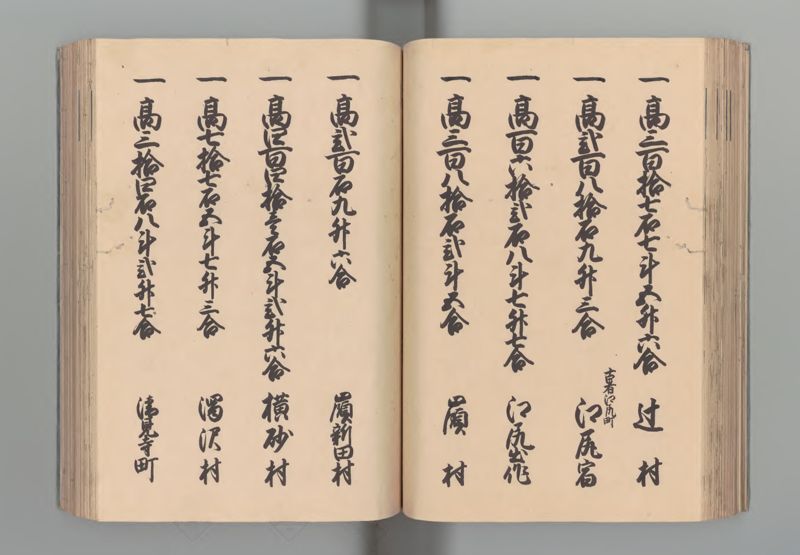 一 高三百拾七石七斗五升六合 辻村
一 高弐百八拾石九升三合 古者江尻町 江尻宿
一 高百六拾弐石八斗七升七合 江尻出作
一 高三百八拾石弐斗五合 嶺村
一 高弐百石九升六合 嶺新田村
一 高四百四拾壱石五斗弐升六合 横砂村
一 高七拾七石五斗七升三合 濁沢村
一 高三拾四石八斗弐升七合 清見寺町